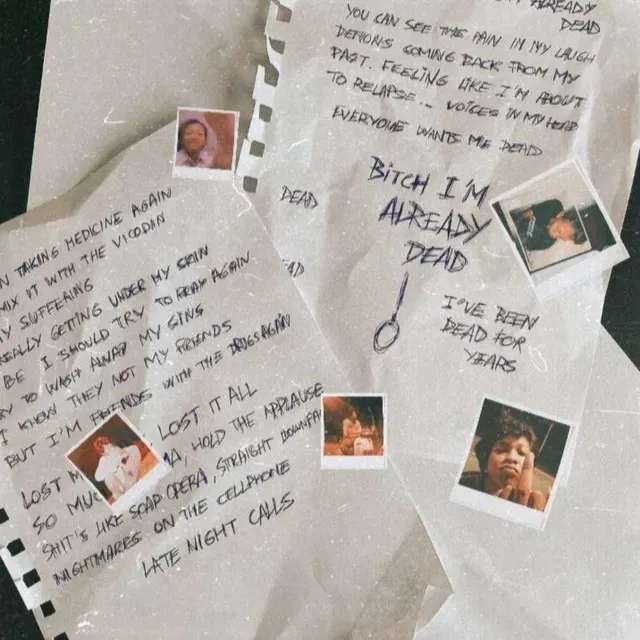 ALREADY
DEAD
YOU CAN SEE THIS PAIN IN MY LAUGH
DEMONS COMING BACK FROM MY
PAST. FEELING LIKE I'M ABOUT
TO RELAPSE.. VOICES IN MY HEAD
EVERYONE WANTS ME DEAD
BITCH I'M
ALREADY
DEAD
I'VE BEEN
DEAD FOR
YEARS
DEAD
AD
N TAKING MEDICINE AGAIN
MIX IT WITH THE VICODIN
Y SUFFERING
REALLY GETTING UNDER MY SKIN
BE I SHOULD TRY TO PRAY AGAIN
RY TO WASH AWAY MY SINS
I KNOW THEY NOT MY FRIENDS
BUT I'M FRIENDS WITH THE DRUGS AGAIN
LOST M LOST IT ALL
SO MUC MA, HOLD THE APPLAUSE
SHIT'S LIKE SOAP OPERA, STRAIGHT DOWNFA
NIGHTMARES ON THE CELLPHONE
LATE NIGHT CALLS